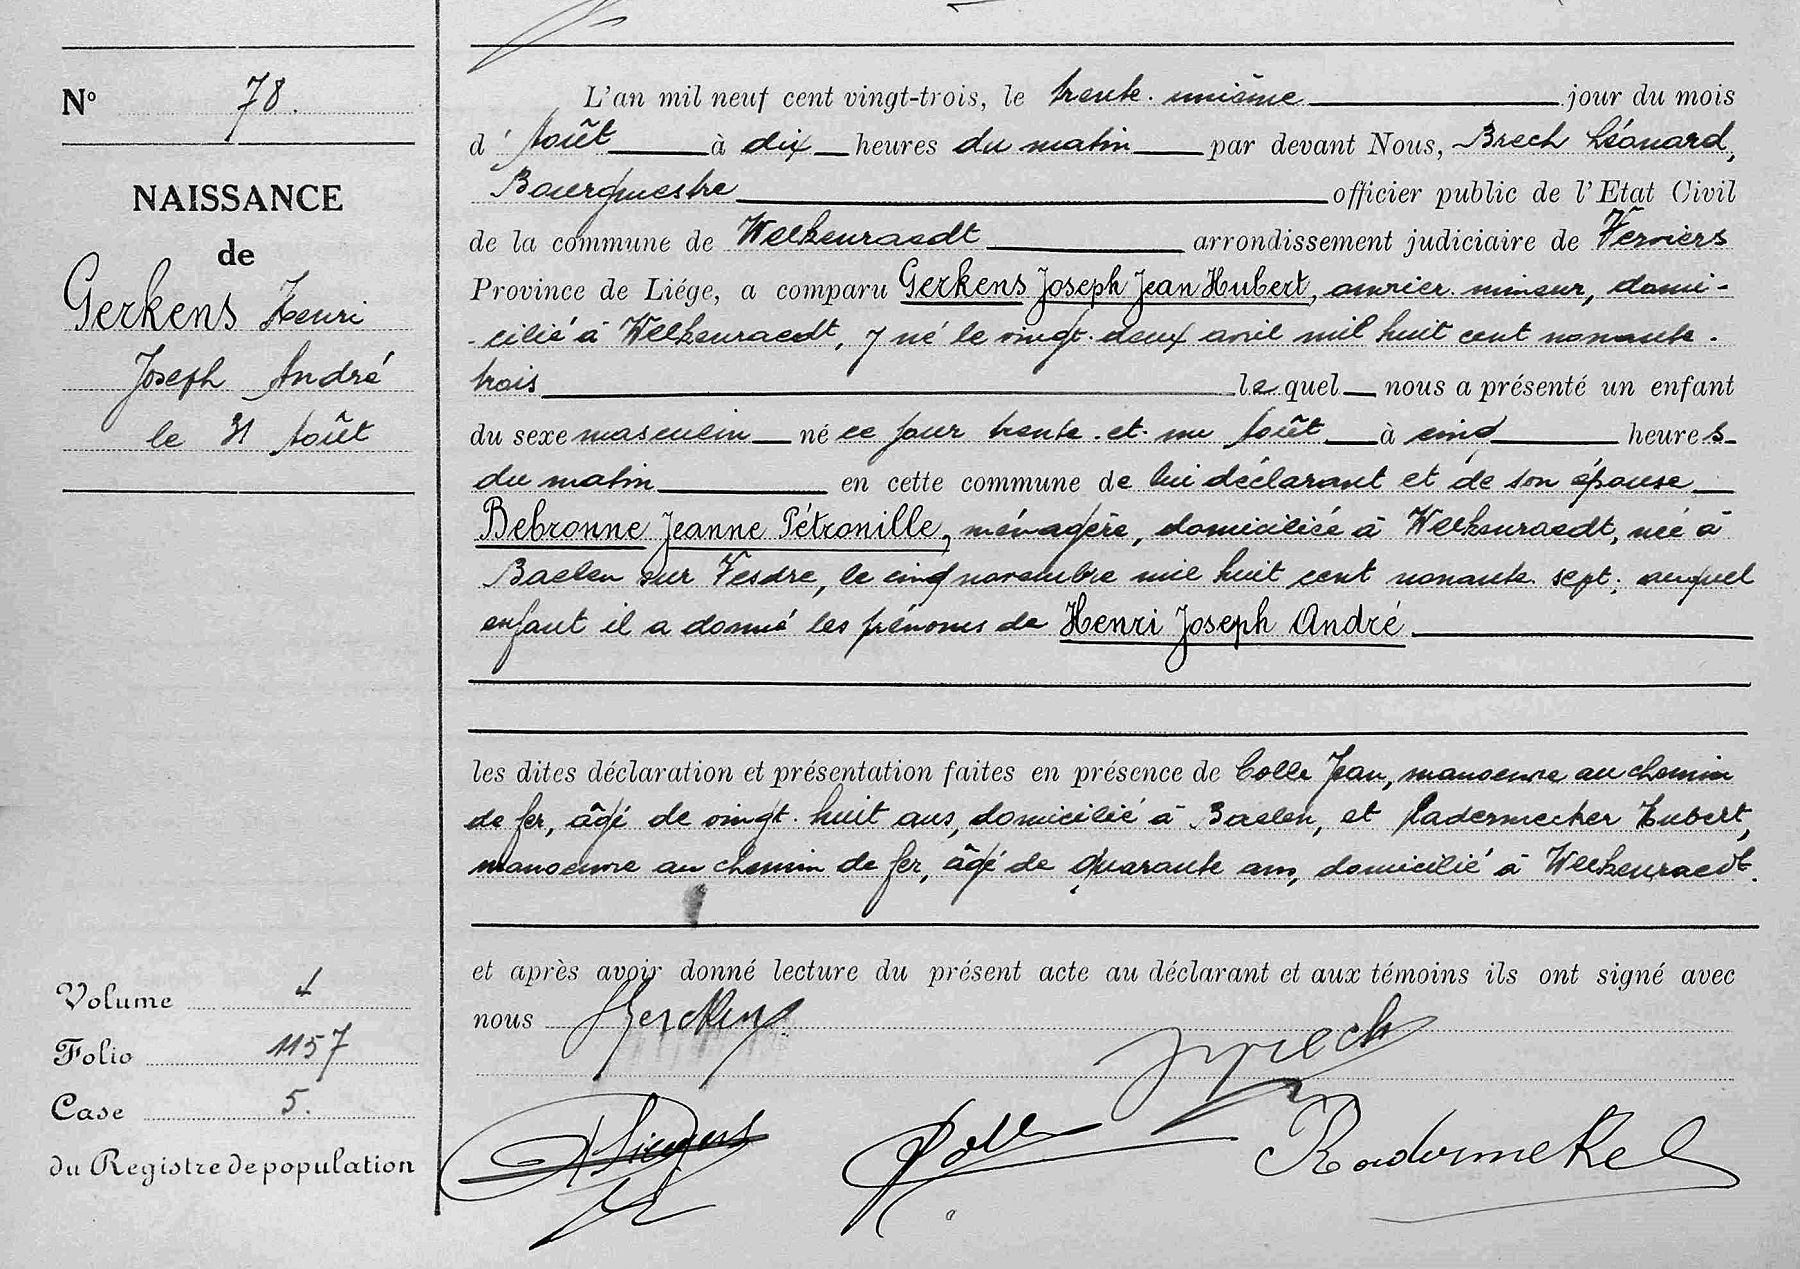 N° 78.
NAISSANCE
de
Gerkens Henri
Joseph André
le 31 Août
Volume 4
Folio 1157
Case 5.
du Registre de population
L'an mil neuf cent vingt-trois, le trente-unième jour du mois
d' Août à dix heures du matin par devant Nous, Brech Léonard,
Bourgmestre officier public de l'Etat Civil
de la commune de Welkenraedt arrondissement judiciaire de Verviers
Province de Liége, a comparu Gerkens Joseph Jean Hubert, ouvrier mineur, domi-
-cilié à Welkenraedt, y né le vingt-deux avril mil huit cent nonante-
trois lequel nous a présenté un enfant
du sexe masculin né ce jour trente-et-un Août à cinq heures
du matin en cette commune de lui déclarant et de son épouse
Bebronne Jeanne Pétronille, ménagère, domiciliée à Welkenraedt, née à
Baelen sur Vesdre, le cinq novembre mil huit cent nonante-sept; auquel
enfant il a donné les prénoms de Henri Joseph André
les dites déclaration et présentation faites en présence de Colle Jean, manoeuvre au chemin
de fer, âgé de vingt-huit ans, domicilié à Baelen, et Radermecker Hubert,
manoeuvre au chemin de fer, âgé de quarante ans, domicilié à Welkenraedt.
et après avoir donné lecture du présent acte au déclarant et aux témoins ils ont signé avec
nous Gerckens
Brech
Colle Radermeker